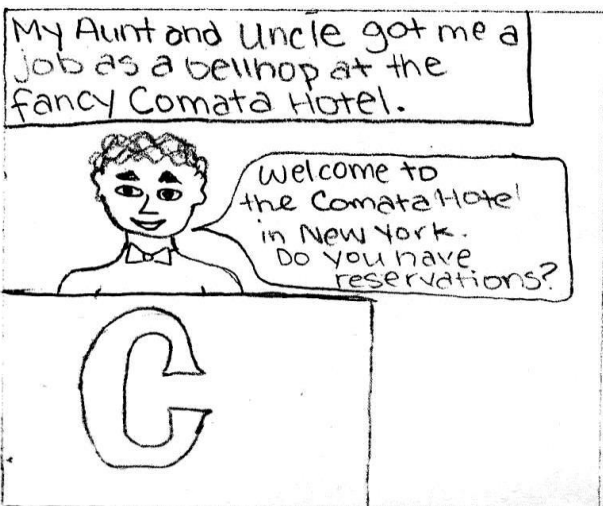 My Aunt and Uncle got me a
job as a bellhop at the
fancy Comata Hotel.
Welcome to
the Comata Hotel
in New York.
Do you have
reservations?
C